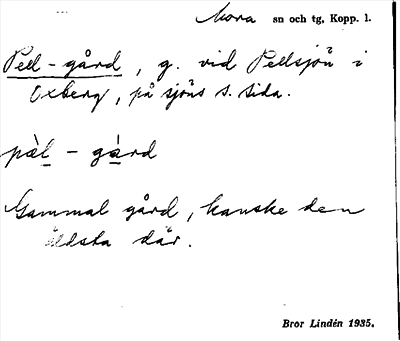 Mora sn och tg, Kopp. l.
Pell-gård, g. vid Pellsjön i
Oxberg, på sjöns s. sida.
pàl - gàrd
Gammal gård, kanske den
äldsta där.
Bror Lindén 1935.